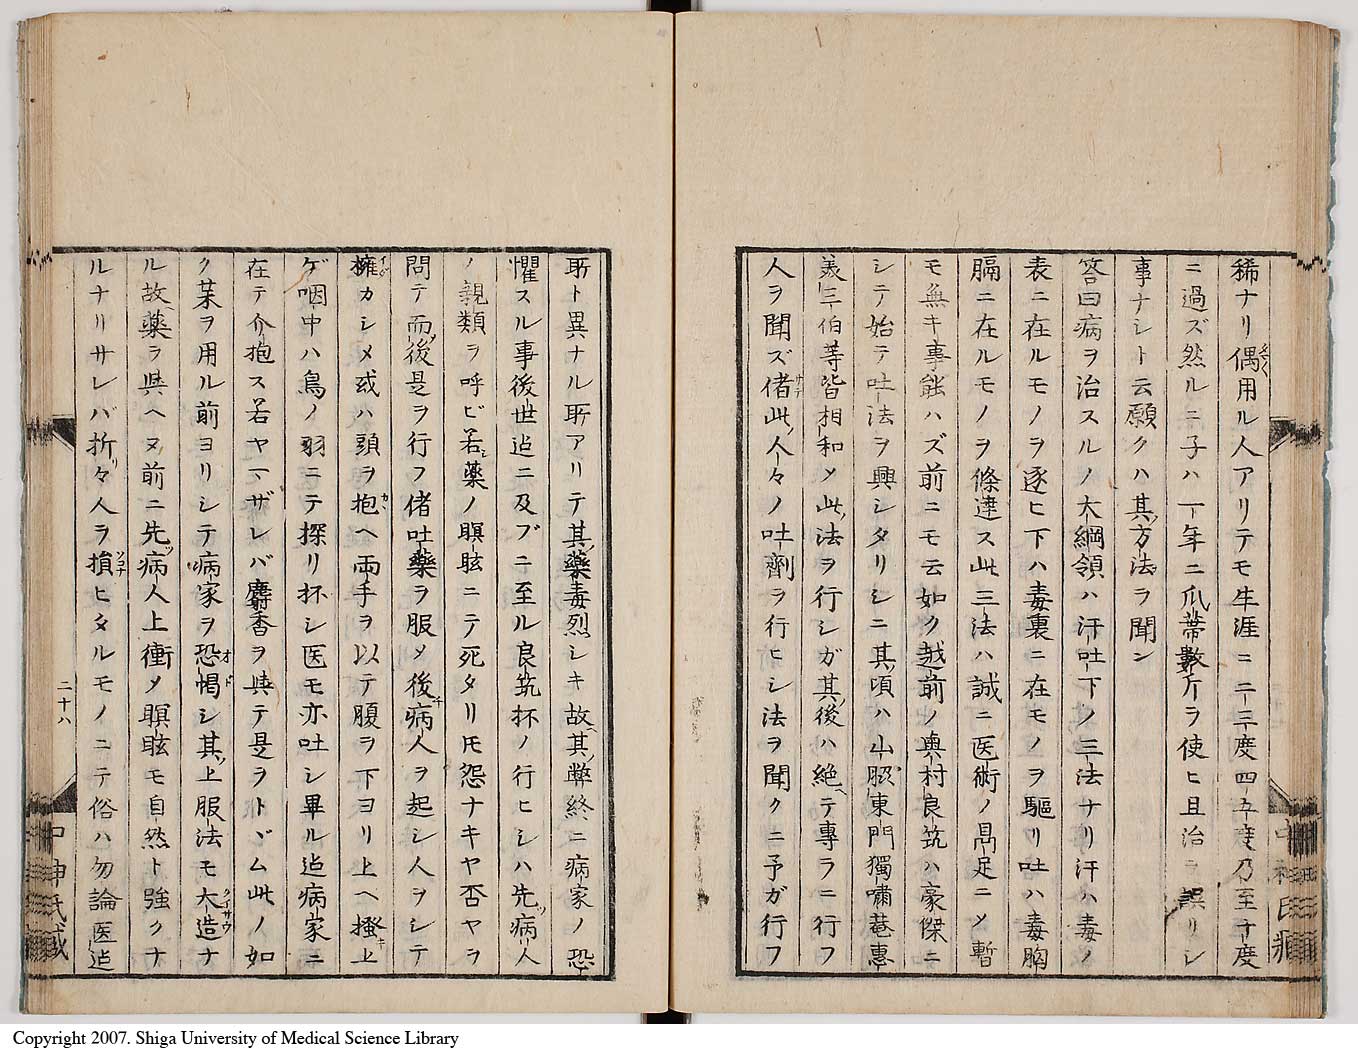 稀ナリ偶用ル人アリテモ生涯ニ二三度四五度乃至十度
ニ過ズ然ルニ子ハ一年ニ瓜蒂數斤ヲ使ヒ且治ニ誤リシ
事ナシト云願クハ其方法ヲ聞ン
答曰病ヲ治スルノ大綱領ハ汗吐下ノ三法ナリ汗ハ毒ノ
表ニ在ルモノヲ逐ヒ下ハ毒裏ニ在モノヲ驅リ吐ハ毒胸
膈ニ在ルモノヲ條達ス此三法ハ誠ニ医術ノ鼎足ニメ暫
モ無キ事能ハズ前ニモ云如ク越前ノ奥村良筑ハ豪傑ニ
シテ始テ吐法ヲ興シタリシニ其頃ハ山脇東門獨嘯菴惠
美三伯等皆相和メ此法ヲ行シガ其後ハ絶テ專ラニ行フ
人ヲ聞ズ偖此人々ノ吐劑ヲ行ヒシ法ヲ聞クニ予ガ行フ
所ト異ナル所アリテ其藥毒烈シキ故其弊終ニ病家ノ恐
懼スル事後世迠ニ及ブニ至ル良筑抔ノ行ヒシハ先病人
ノ親類ヲ呼ビ若藥ノ瞑眩ニテ死タリ𪜈怨ナキヤ否ヤヲ
問テ而後是ヲ行フ偖吐藥ヲ服メ後病人ヲ起シ人ヲシテ
擁カシメ或ハ頭ヲ抱ヘ兩手ヲ以テ腹ヲ下ヨリ上ヘ搔上
ゲ咽中ハ鳥ノ羽ニテ探リ抔シ医モ亦吐シ畢ル迠病家ニ
在テ介抱ス若ヤマザレバ麝香ヲ與テ是ヲトヾム此ノ如
ク某ヲ用ル前ヨリシテ病家ヲ恐愒シ其上服法モ大造ナ
ル故藥ヲ與ヘヌ前ニ先病人上衝メ瞑眩モ自然ト強クナ
ルナリサレバ折々人ヲ損ヒタルモノニテ俗ハ勿論医迠
二十八
Copyright 2007. Shiga University of Medical Science Library